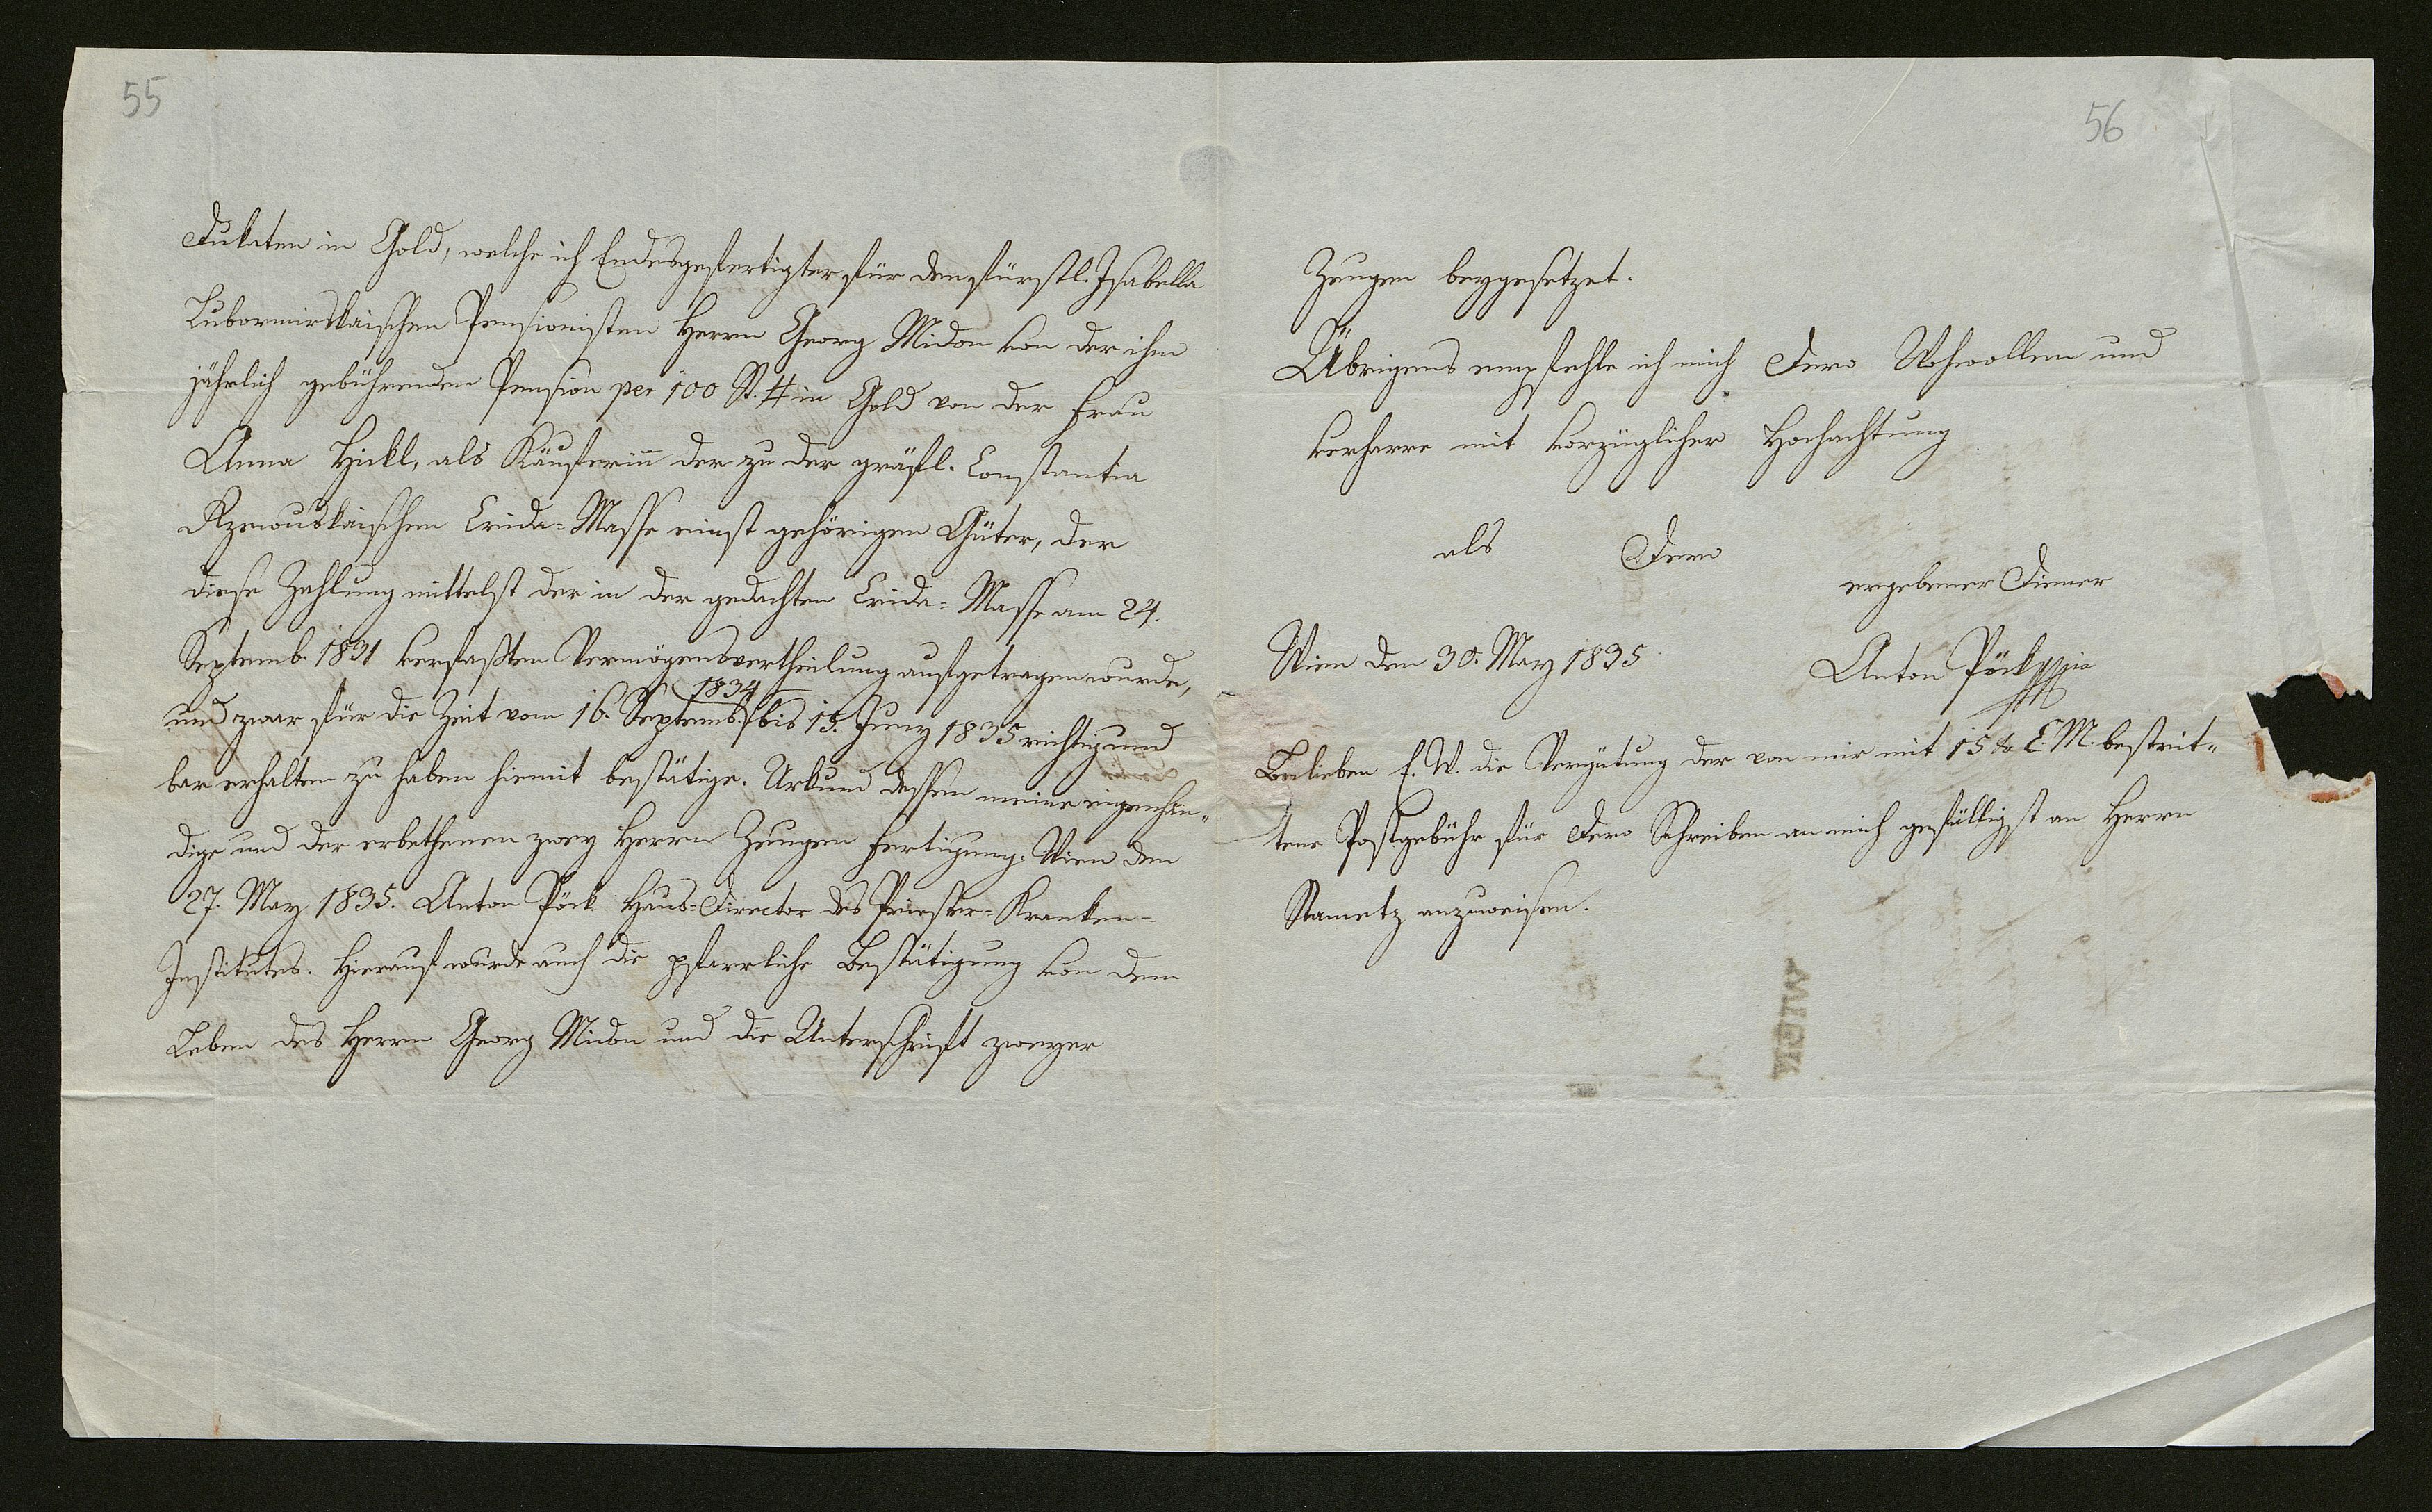 55
Dukaten in Gold, welche ich Endesgefertigter für den fürstl. Isabella
Lubormirskaischen Pensionisten Herrn Georg Midon von der ihm
jährlich gebührenden Pension per 100 St. # in Gold von der Frau
Anna Hickl, als Käuferinn der zu der gräfl. Constantia
Rzewuskaischen Crida-Masse einst gehörigen Güter, der
diese Zahlung mittelst der in der gedachten Crida-Masse am 24.
Septemb. 1831 verfaßten Vermögensvertheilung aufgetragen wurde,
1834
und zwar für die Zeit vom 16. Septemb. bis 15. Juny 1835 richtig und
bar erhalten zu haben hiemit bestätige. Urkund dessen meine eigenhän„
dige und der erbethenen zwey Herrn Zeugen Fertigung. Wien den
27. May 1835. Anton Pöck Haus-Director des Priester-Kranken-
Institutes. Hierauf wurde auch die pfarrliche Bestätigung von dem
Leben des Herrn Georg Midon und die Unterschrift zweyer
56
Zeugen beygesetzet.
Übrigens empfehle ich mich Dero Wohwollen und
verharre mit vorzüglicher Hochachtung
als Dero
ergebener Diener
Wien den 30. May 1835
Anton Pöck
Belieben E. W. die Vergütung der von mir mit 15 C. M. bestrit„
tene Postgebühr für Dero Schreiben an mich gefälligst an Herrn
Stametz anzuweisen.
WIEN